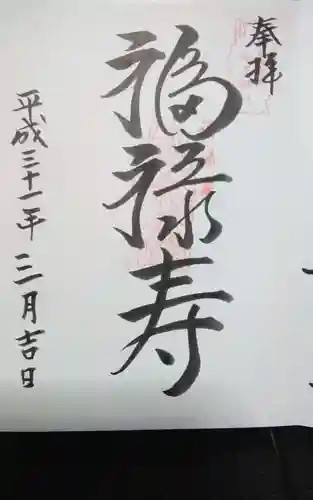 奉拝
福禄寿
平成三十一年
三月吉日